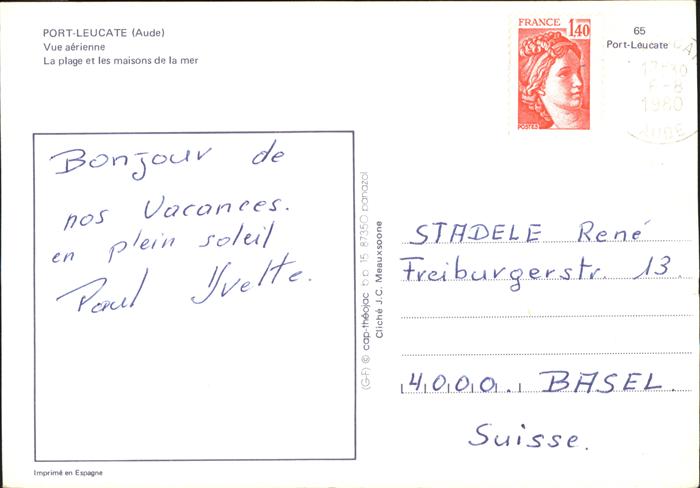 PORT-LEUCATE (Aude)
Vue aérienne
La plage et les maisons de la mer
FRANCE
1,40
POSTES
65
Port-Leucate
1980
AUDE
Bonjour de
nos Vacances.
en plein soleil
Paul Yvette.
(G-F) © cap-théojac b.p. 15 87350 panazol
Cliché J.C. Meauxsoone
STADELE René
Freiburgerstr. 13.
4000. BASEL.
Suisse.
Imprimé en Espagne